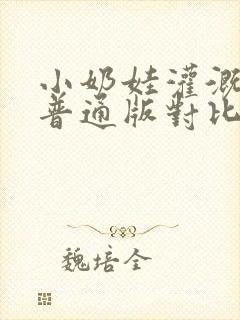 小奶娃灌溉
普通版對比
魏培全